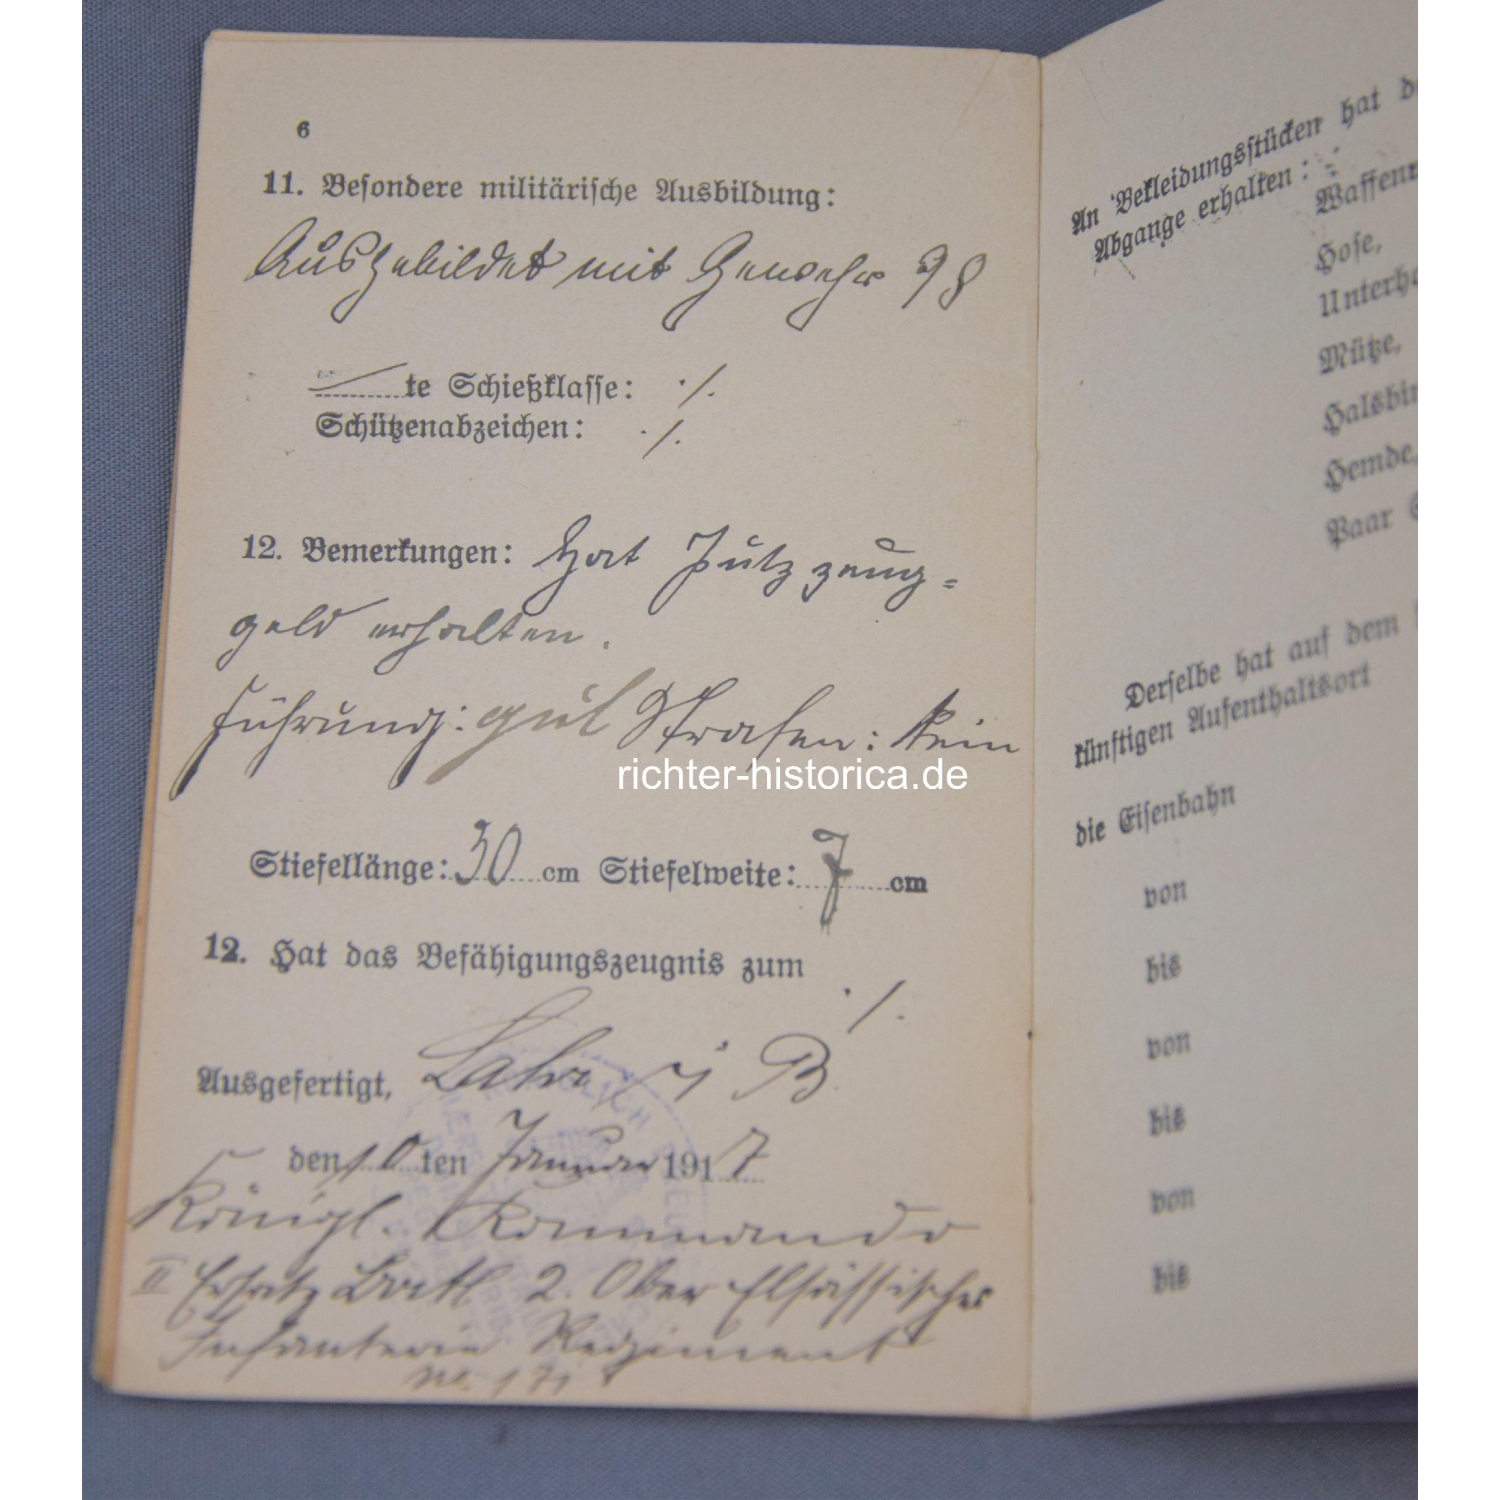 6
11. Besondere militärische Ausbildung:
Ausgebildet mit Gewehr 98
te Schießklasse: ./.
Schützenabzeichen: ./.
12. Bemerkungen: Hat Putzzeug=
geld erhalten.
Führung: gut Strafen: Kein
richter-historica.de
Stiefellänge: 30 cm Stiefelweite: 7 cm
12. Hat das Befähigungszeugnis zum
./.
Ausgefertigt, Lahr i B
den 10ten Januar 1917
Königl. Kommando
II Ersatz Batl 2. Ober Elsässisches
Infanterie Regiment
No. 171
An Bekleidungsstücken hat
Abgange erhalten:
Hose,
Mütze,
Hemde,
Paar
Derselbe hat auf dem
künftigen Aufenthaltsort
die Eisenbahn
von
bis
von
bis
von
bis